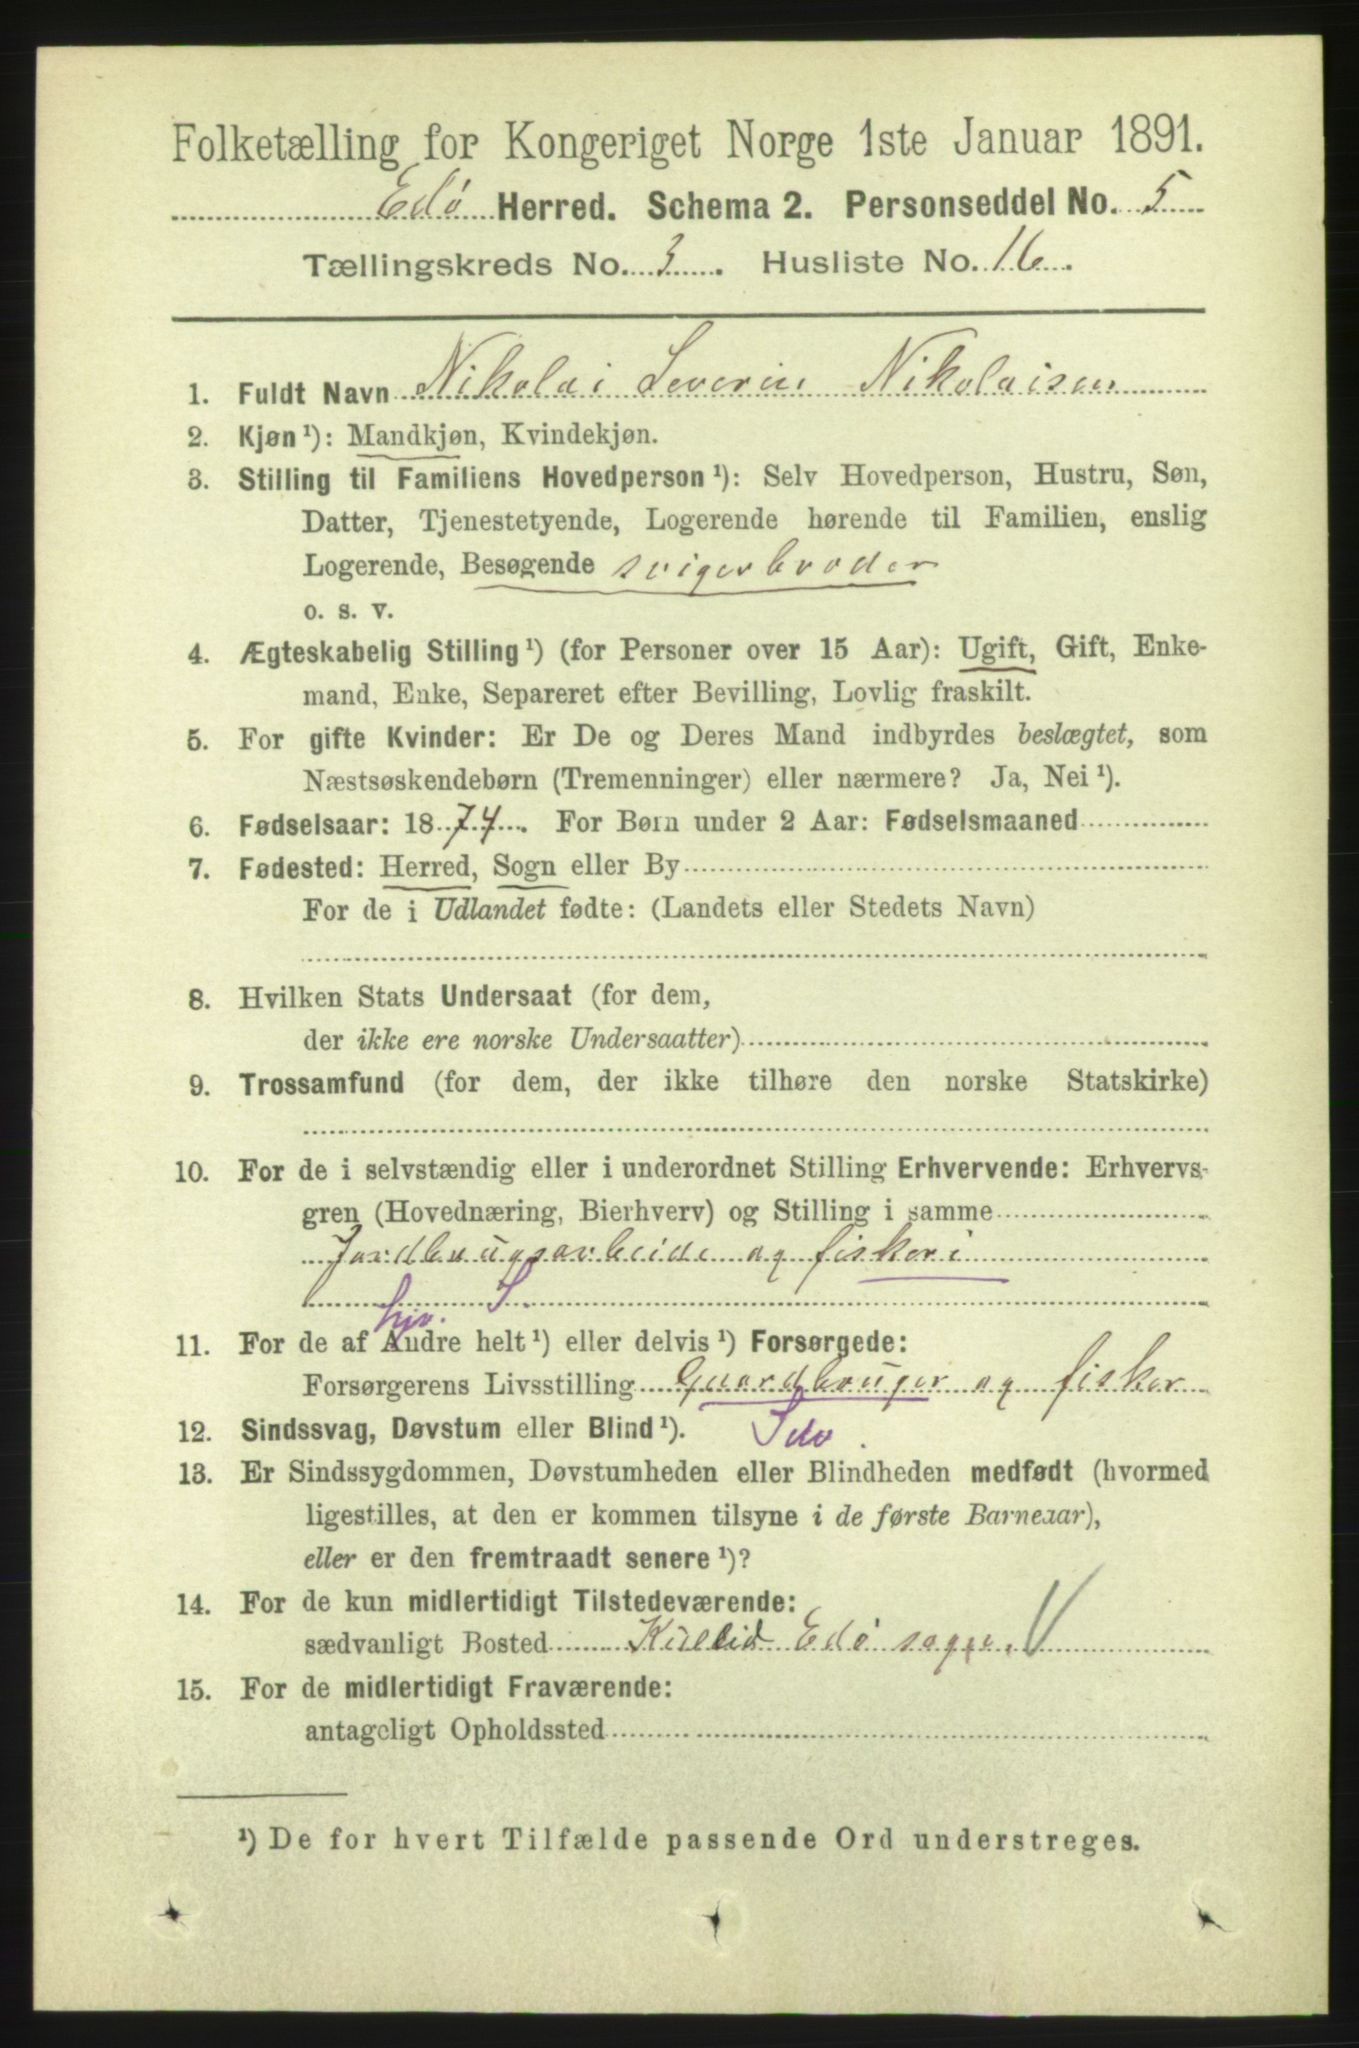 Folketælling for Kongeriget Norge 1ste Januar 1891.
Edø Herred. Schema 2. Personseddel No. 5
Tællingskreds No. 3. Husliste No. 16.
1. Fuldt Navn Nikolai Severin Nikolaisen
2. Kjøn ¹): Mandkjøn, Kvindekjøn.
3. Stilling til Familiens Hovedperson ¹): Selv Hovedperson, Hustru, Søn,
Datter, Tjenestetyende, Logerende hørende til Familien, enslig
Logerende, Besøgende svigerbroder
o. s. v.
4. Ægteskabelig Stilling ¹) (for Personer over 15 Aar): Ugift, Gift, Enke-
mand, Enke, Separeret efter Bevilling, Lovlig fraskilt.
5. For gifte Kvinder: Er De og Deres Mand indbyrdes beslægtet, som
Næstsøskendebørn (Tremenninger) eller nærmere? Ja, Nei ¹).
6. Fødselsaar: 1874. For Børn under 2 Aar: Fødselsmaaned
7. Fødested: Herred, Sogn eller By
For de i Udlandet fødte: (Landets eller Stedets Navn)
8. Hvilken Stats Undersaat (for dem,
der ikke ere norske Undersaatter)
9. Trossamfund (for dem, der ikke tilhøre den norske Statskirke)
10. For de i selvstændig eller i underordnet Stilling Erhvervende: Erhvervs-
gren (Hovednæring, Bierhverv) og Stilling i samme
Jordbrugsarbeide og fiskeri
hjv. S.
11. For de af Andre helt ¹) eller delvis ¹) Forsørgede:
Forsørgerens Livsstilling Gaardbruger og fisker
12. Sindssvag, Døvstum eller Blind ¹).
13. Er Sindssygdommen, Døvstumheden eller Blindheden medfødt (hvormed
ligestilles, at den er kommen tilsyne i de første Barneaar),
eller er den fremtraadt senere ¹)?
14. For de kun midlertidigt Tilstedeværende:
sædvanligt Bosted Edø sogn.
15. For de midlertidigt Fraværende:
antageligt Opholdssted
¹) De for hvert Tilfælde passende Ord understreges.